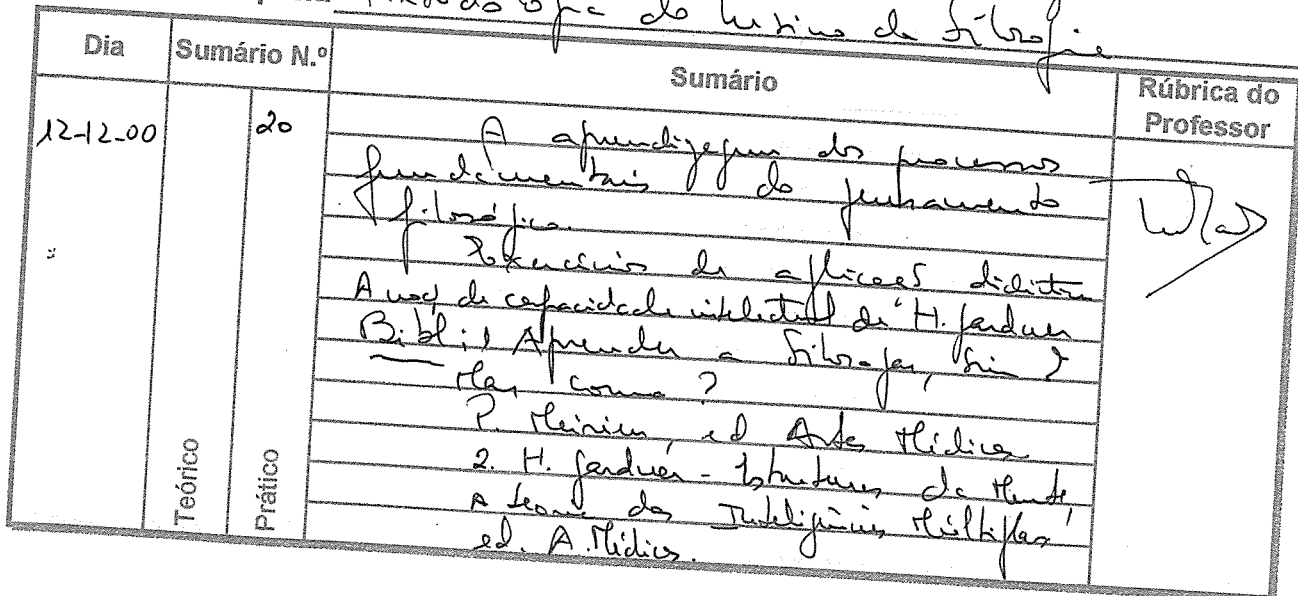 do Ensino da Filosofia
Dia Sumário N.º Sumário Rúbrica do Professor
12-12-00 20 A aprendizagem dos processos
fundamentais do pensamento
filosófico.
Exercícios de aplicação didática
A noção de capacidade intelectual de H. Gardner
Bibl: 1 Aprender a filosofar, Sim?
Mas como?
P. Meirieu, ed Artes Médicas
2. H. Gardner - Estruturas da Mente,
A teoria das Inteligências Múltiplas
ed. A. Médicas.
Teórico
Prático